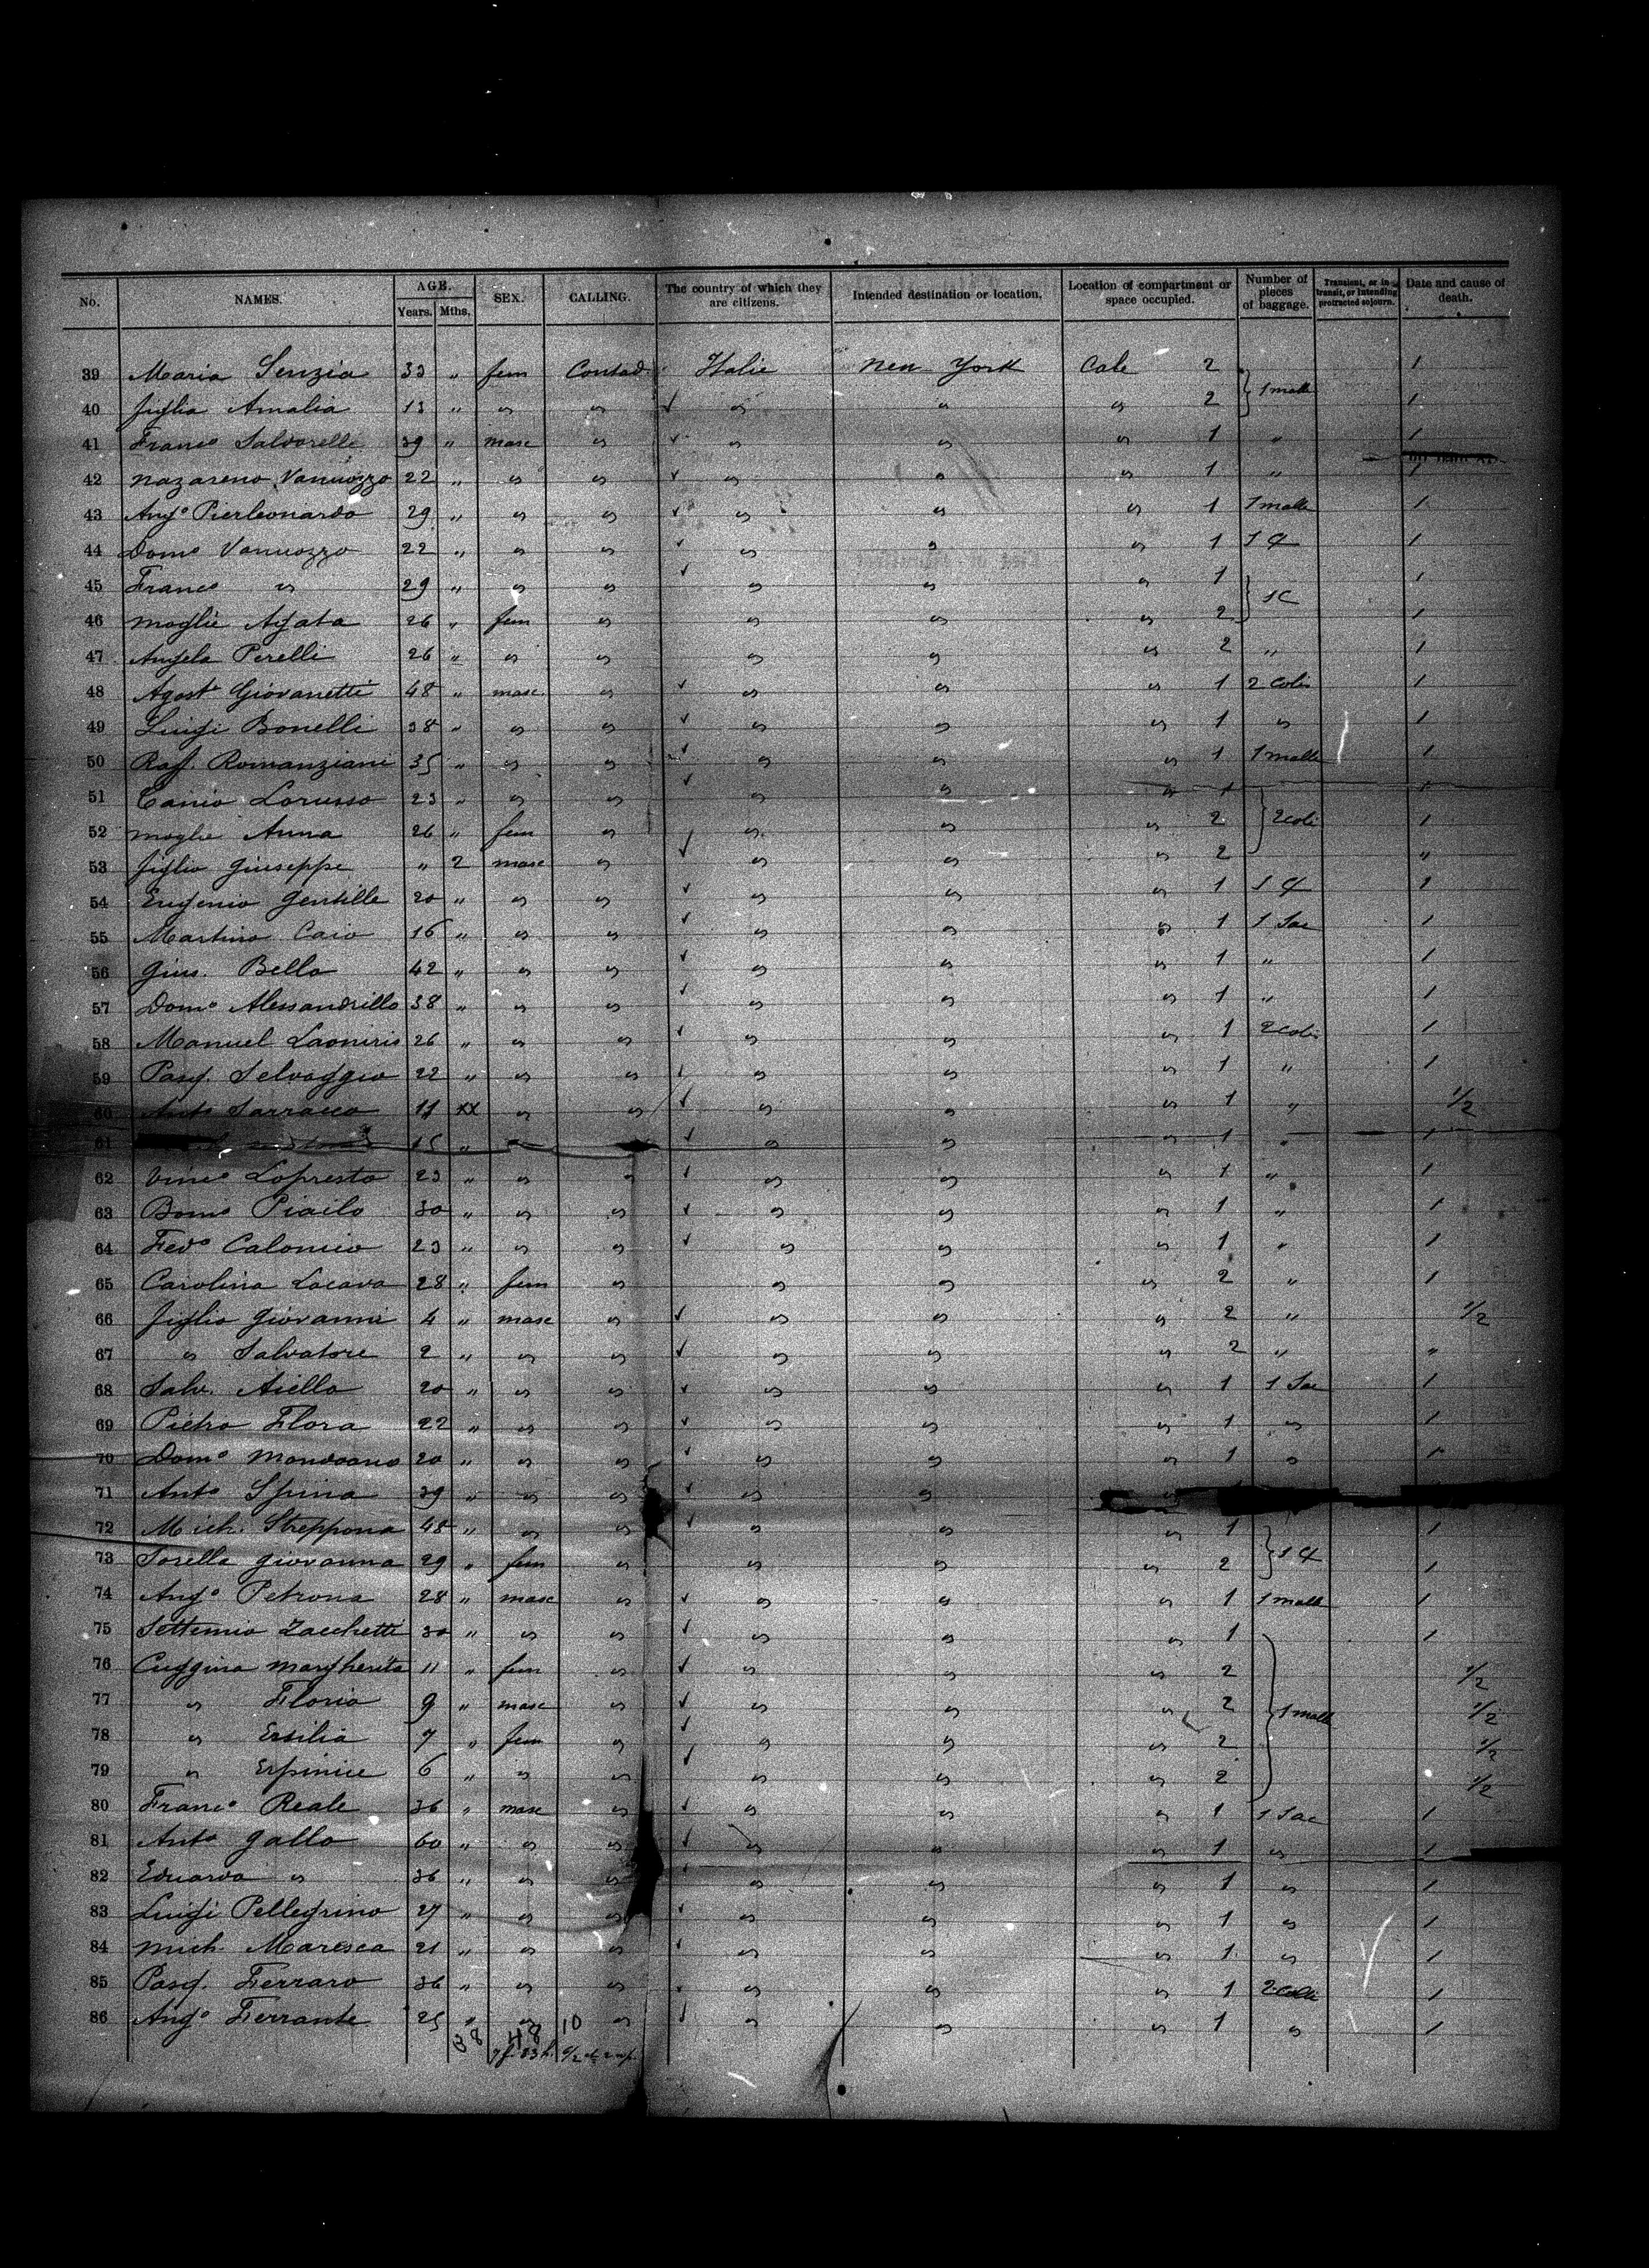 No. NAMES. AGE. Years. Mths. SEX. CALLING. The country of which they are citizens. Intended destination or location. Location of compartment or space occupied. Number of pieces of baggage. Transient, or in transit, or intending protracted sojourn. Date and cause of death.
39 Maria Senzia 33 " fem Contad. Italie New York Cale 2 1 malle 1
40 figlia Amalia 13 " " " " " " 2 1
41 Franco Salvorelle 39 " masc " " " " 1 " 1
42 Nazareno Vanuozzo 22 " " " " " " 1 " 1
43 Ango Pierleonardo 29 " " " " " " 1 1 malle 1
44 Domo Vanuozzo 22 " " " " " " 1 1 C 1
45 Franco " 29 " " " " " " 1 1 C 1
46 moglie Agata 26 " fem " " " " 2 1
47 Angela Perelli 26 " " " " " " 2 " 1
48 Agost Giovanetti 48 " masc " " " " 1 2 coli 1
49 Luigi Bonelli 38 " " " " " " 1 " 1
50 Raf. Romanziani 35 " " " " " " 1 1 malle 1
51 Canio Lorusso 23 " " " " " " 1 2 coli 1
52 moglie Anna 26 " fem " " " " 2 1
53 figlio Giuseppe " 2 masc " " " " 2 "
54 Eugenio Gentille 20 " " " " " " 1 1 C 1
55 Martino Caio 16 " " " " " " 1 1 Sac 1
56 Gius. Bello 42 " " " " " " 1 " 1
57 Domo Alessandrillo 38 " " " " " " 1 " 1
58 Manuel Laoniris 26 " " " " " " 1 2 coli 1
59 Pasq. Selvaggio 22 " " " " " " 1 " 1
60 Anto Sarracco 11 xx " " " " " 1 " 1/2
61 15 " " " " " 1 " 1
62 Vinco Lopresto 23 " " " " " " 1 " 1
63 Domo Piailo 30 " " " " " " 1 " 1
64 Fedo Calomio 23 " " " " " " 1 " 1
65 Carolina Lacava 28 " fem " " " " 2 " 1
66 figlio Giovanni 4 " masc " " " " 2 " 1/2
67 " Salvatore 2 " " " " " " 2 " "
68 Salv. Aiello 20 " " " " " " 1 1 Sac 1
69 Pietro Flora 22 " " " " " " 1 " 1
70 Domo Mondoano 20 " " " " " " 1 " 1
71 Anto Spina 39 " " " " "
72 Mich. Streppona 48 " " " " " " 1 1 C 1
73 Sorella Giovanna 29 " fem " " " " 2 1
74 Ango Petrona 28 " masc " " " " 1 1 malle 1
75 Settimio Zacchetti 30 " " " " " " 1 1 malle 1
76 Cuggina Margherita 11 " fem " " " " 2 1/2
77 " Floria 9 " masc " " " " 2 1/2
78 " Ersilia 7 " fem " " " " 2 1/2
79 " Erpinice 6 " " " " " " 2 1/2
80 Franco Reale 36 " masc " " " " 1 1 Sac 1
81 Anto Gallo 60 " " " " " " 1 " 1
82 Eduardo " 36 " " " " " " 1 " 1
83 Luigi Pellegrino 27 " " " " " " 1 " 1
84 Mich. Maresca 21 " " " " " " 1 " 1
85 Pasq. Ferraro 36 " " " " " " 1 2 colli 1
86 Ango Ferrante 25 " " " " " " 1 " 1
38 48 10